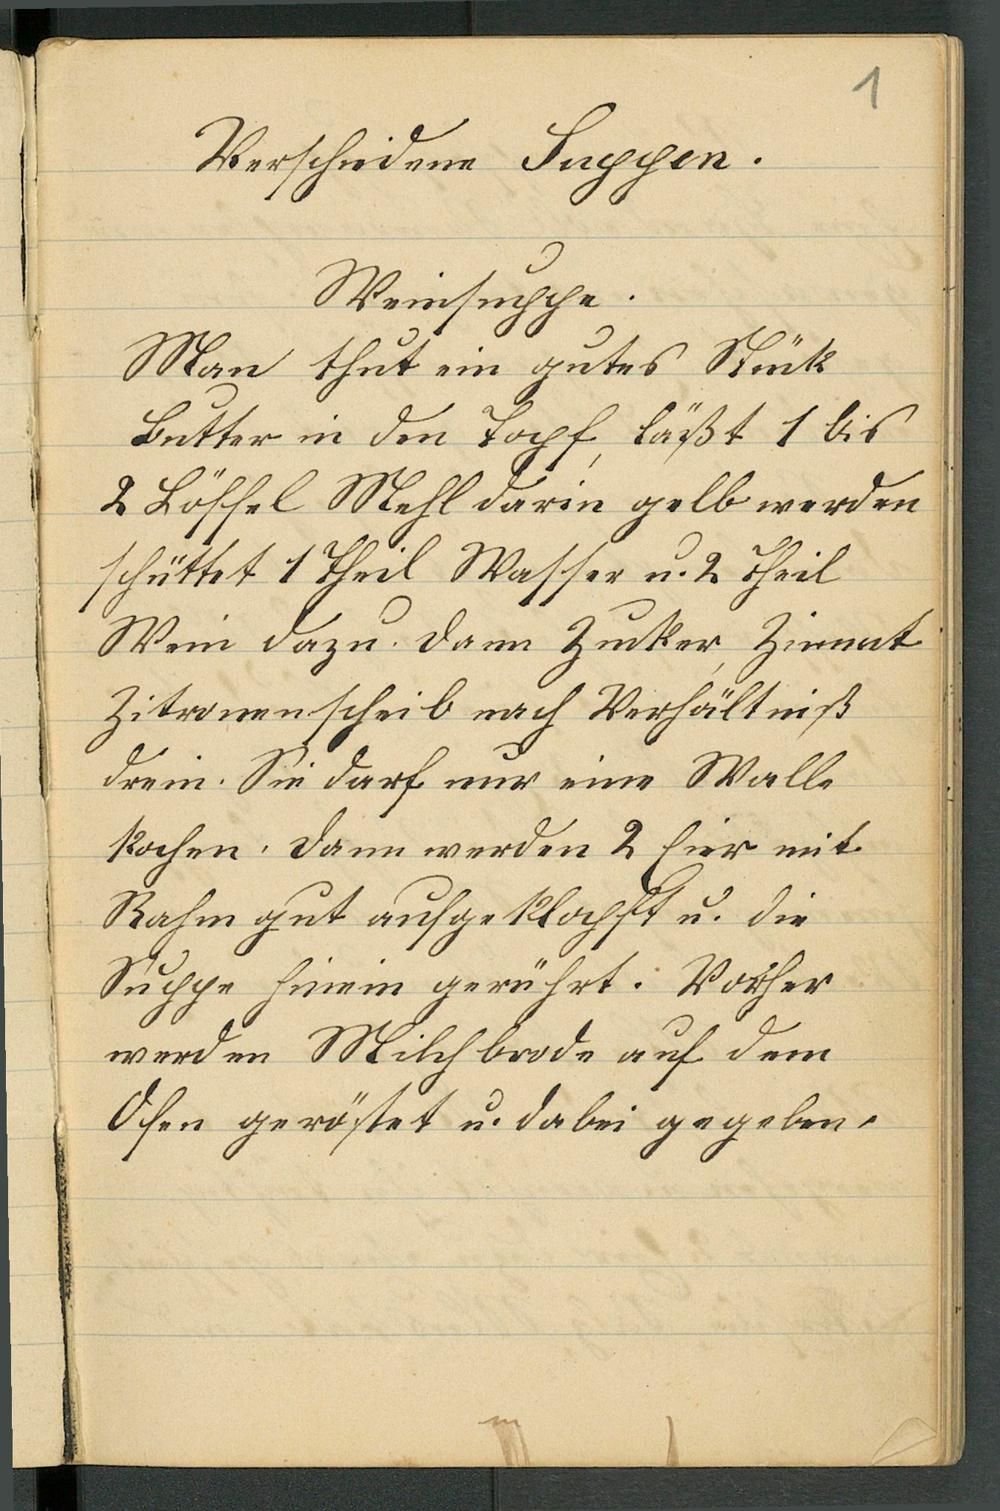 1
Verschiedene Suppen.
Weinsuppe.
Man thut ein gutes Stük
Butter in den Topf, läßt 1 bis
2 Löffel Mehl darin gelb werden
schüttet 1 Theil Wasser u. 2 Theil
Wein dazu. Dann Zucker, Zimmt
Zitronenscheib nach Verhältniß
drein. Sie darf nur eine Walle
kochen. Dann werden 2 Eier mit
Rahm gut aufgeklopft u. die
Suppe hinein gerührt. Vorher
werden Milchbrode auf dem
Ofen geröstet u. dabei gegeben.